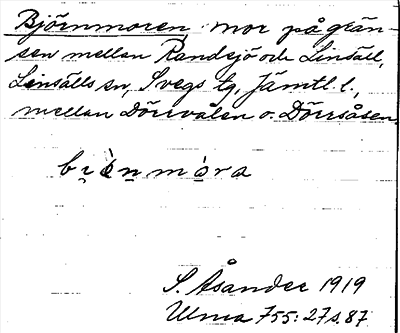 Björnmoren, mor på grän-
sen mellan Randsjö och Linsäll,
Linsälls sn, Svegs tg, Jämtl. l.,
mellan Dörrvålen o. Dörråsen.
S. Åsander 1919
Ulma 755: 27 s. 87